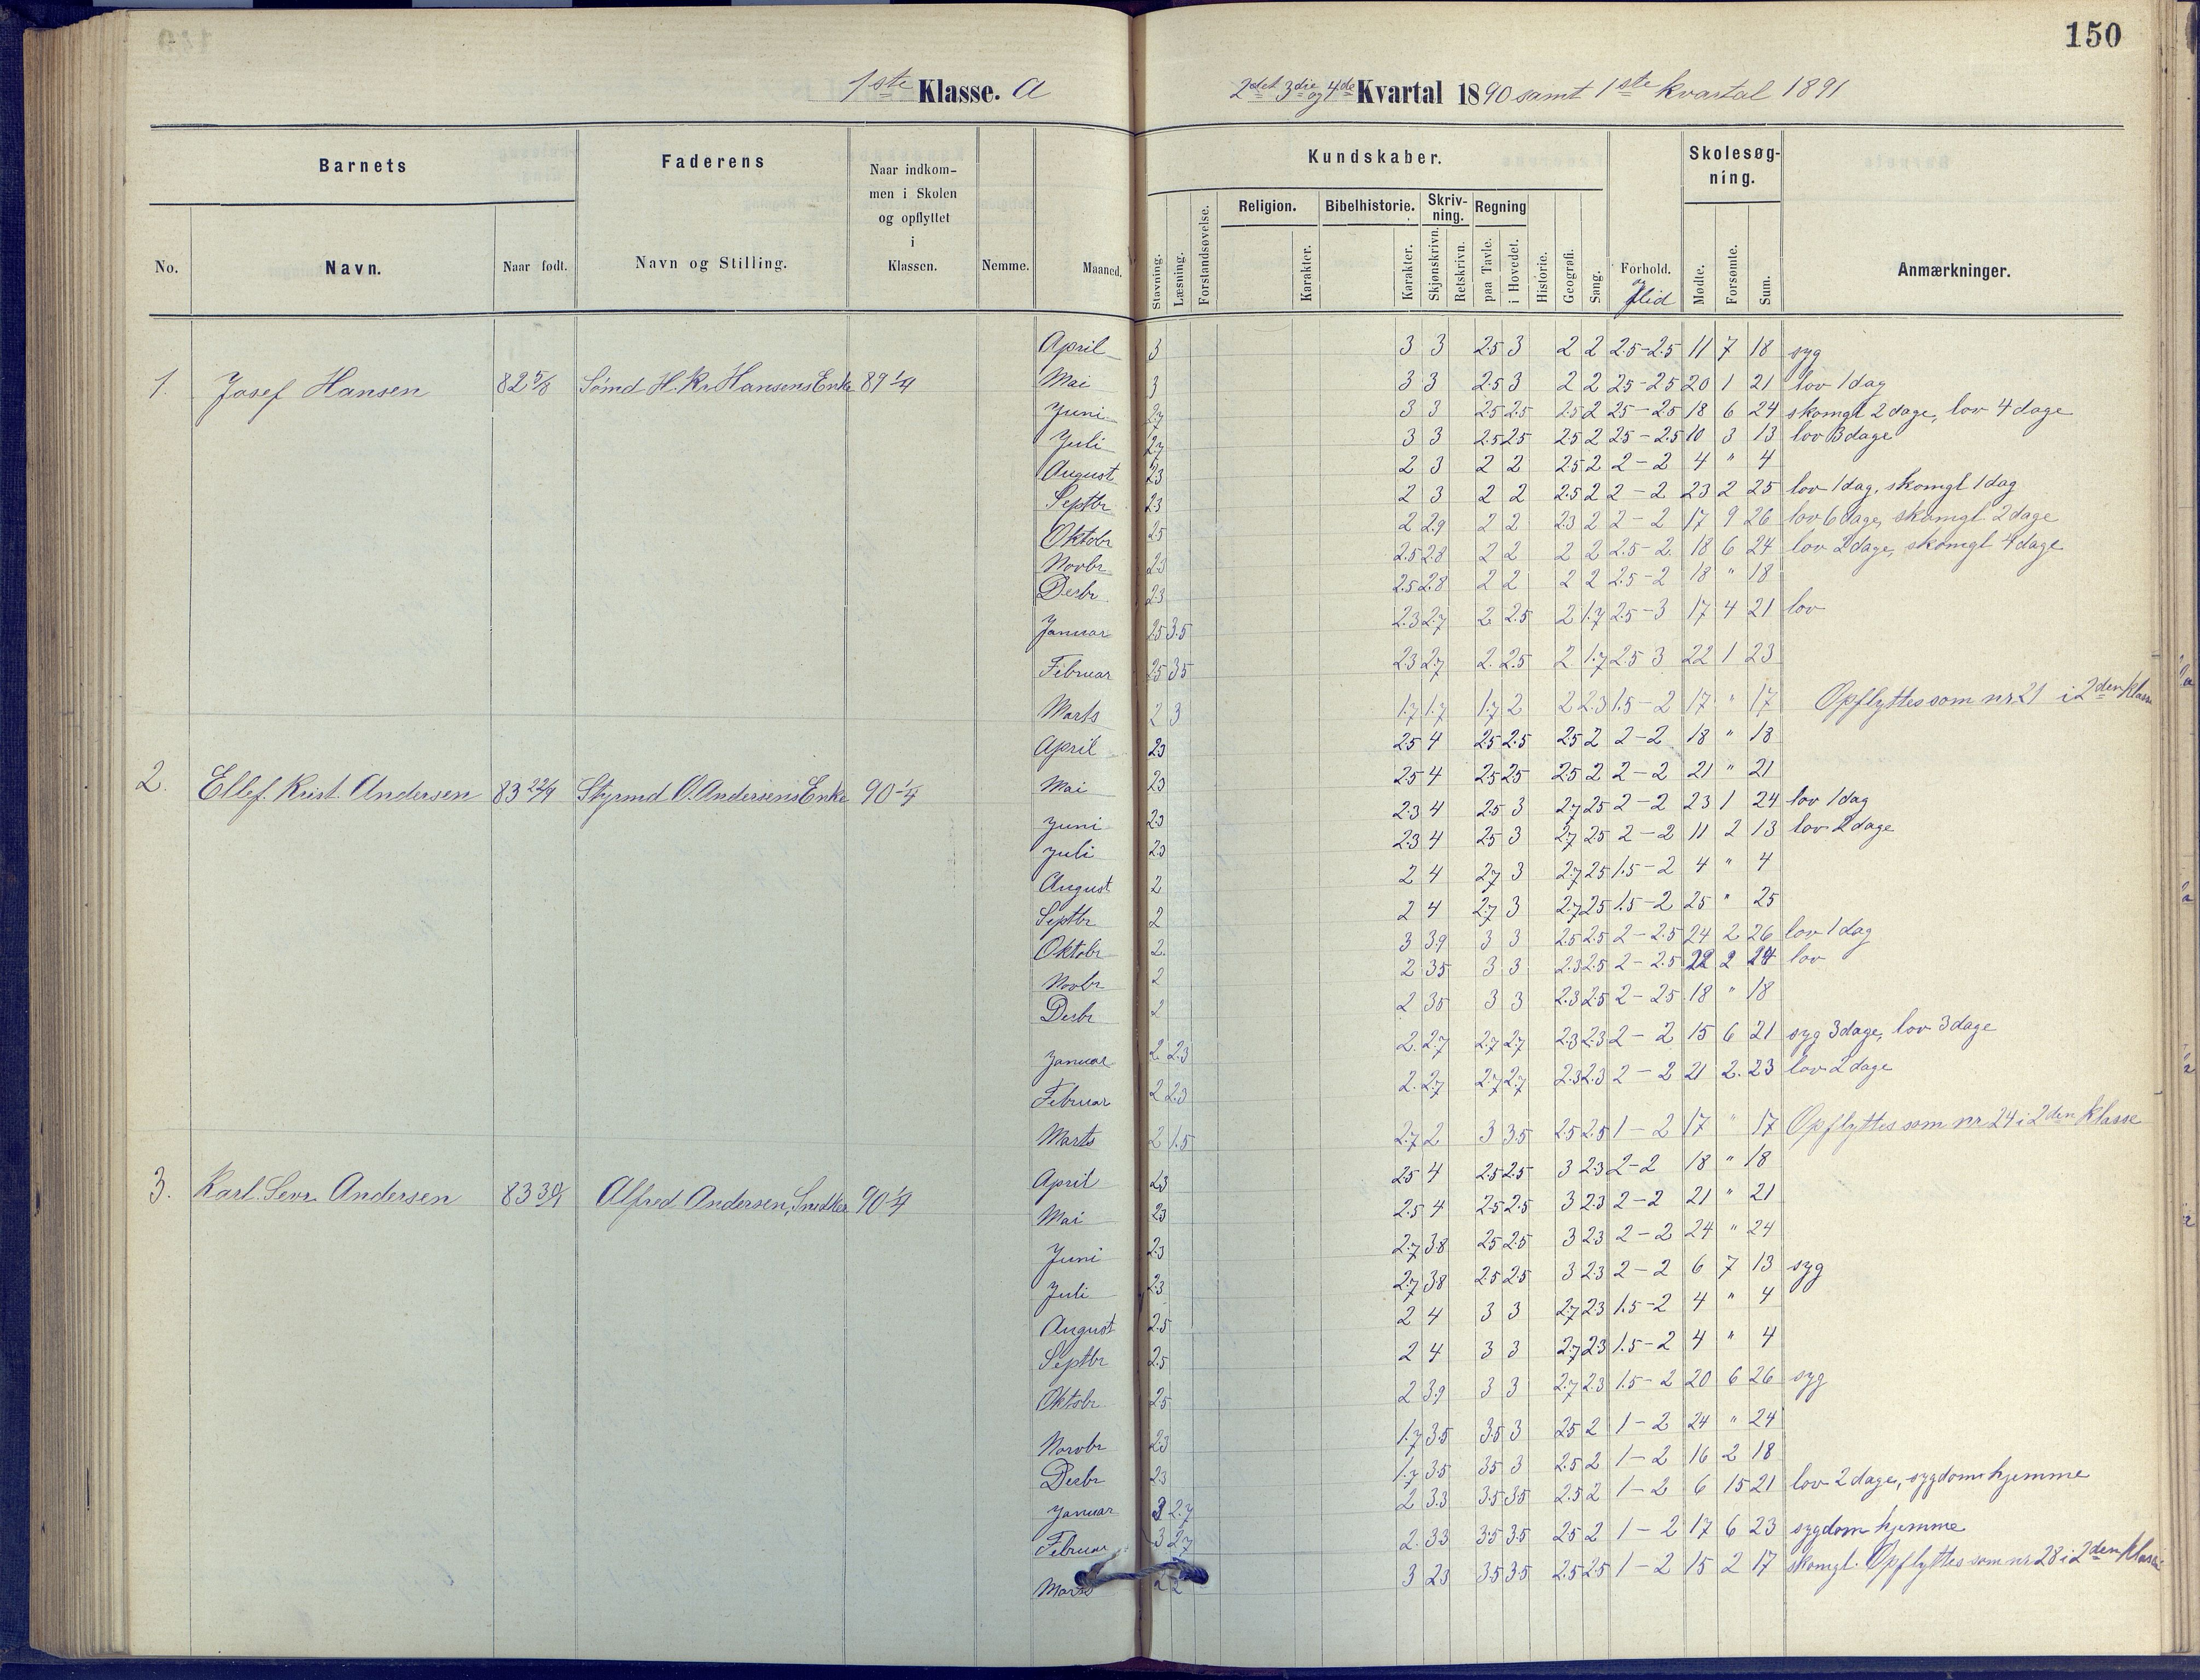 150
1ste Klasse. a
2det 3die og 4de Kvartal 1890 samt 1ste kvartal 1891
Barnets
Faderens
Naar indkommen i Skolen og opflyttet i Klassen.
Nemme.
Maaned.
Kundskaber.
Forhold. og flid
Skolesøgning.
Anmærkninger.
No. Navn. Naar født. Navn og Stilling.
Stavning. Læsning. Forstandsøvelse. Religion. Karakter. Bibelhistorie. Karakter. Skrivning. Skjønskrivn. Retskrivn. Regning paa Tavle. i Hovedet. Historie. Geografi. Sang. Mødte. Forsømte. Sum.
1. Josef Hansen 82 5/8 Sømd H. Kr. Hansens Enke 89 1/4
April 3 3 3 2.5 3 2 2 2.5-2.5 11 7 18 syg
Mai 3 3 3 2.5 3 2 2 25-25 20 1 21 lov 1 dag
Juni 2.7 3 3 2.5 2.5 2.5 2 25-25 18 6 24 skomgl 2 dage, lov 4 dage
Juli 2.7 3 3 2.5 25 2.5 2 25-2.5 10 3 13 lov 3 dage
August 23 2 3 2 2 2.5 2 2-2 4 " 4
Septbr 23 2 3 2 2 2.5 2 2-2 23 2 25 lov 1 dag, skomgl 1 dag
Oktobr 25 2 2.9 2 2 2.3 2 2-2 17 9 26 lov 6 dage, skomgl. 2 dage
Novbr 23 2.5 2.8 2 2 2 2 2.5-2 18 6 24 lov 2 dage, skomgl 4 dage
Desbr 23 2.5 2.8 2 2 2 2 2.5-2 18 " 18
Januar 25 3.5 2.3 2.7 2 2.5 2 1.7 2.5-3 17 4 21 lov
Februar 25 35 23 2.7 2. 2.5 2 1.7 25 3 22 1 23
Marts 2 3 1.7 1.7 1.7 2 2 2.3 1.5-2 17 " 17 Opflyttes som nr 21 i 2den Klasse
2. Ellef. Krist. Andersen 83 22/4 Styrmd O. Andersens Enke 90 1/4
April 23 25 4 25 2.5 25 2 2-2 18 " 18
Mai 23 25 4 25 25 2.5 2 2-2 21 " 21
Juni 23 2.3 4 25 3 2.7 25 2-2 23 1 24 lov 1 dag
Juli 23 2.3 4 25 3 2.7 25 2-2 11 2 13 lov 2 dage
August 2 2 4 2.7 3 2.7 25 1.5-2 4 " 4
Septbr 2 2 4 2.7 3 2.7 25 1.5-2 25 " 25
Oktobr 2. 3 3.9 3 3 2.5 2.5 2-2.5 24 2 26 lov 1 dag
Novbr 2 2 35 3 3 2.3 2.5 2-2.5 22 2 24 lov
Desbr 2 2 35 3 3 2.3 2.5 2-25 18 " 18
Januar 2 2.3 2. 2.7 2.7 2.7 2.3 2.3 2-2 15 6 21 syg 3 dage, lov 3 dage
Februar 2 2.3 2. 2.7 2.7 2.7 2.3 2.3 2-2 21 2. 23 lov 2 dage
Marts 2 1.5 2.7 2 3 3.5 2.5 2.5 1-2 17 " 17 Opflyttes som nr 24 i 2den Klasse
3. Karl. Sevr. Andersen Alfred Andersen, Snedker 90 1/4
April 23 25 4 2.5 2.5 3 2.3 2-2 18 " 18
Mai 23 2.5 4 2.5 2.5 3 2.3 2-2 21 " 21
Juni 23 2.7 3.8 25 2.5 3 23 2-2 24 " 24
Juli 23 2.7 38 2.5 2.5 3 2.3 2-2 6 7 13 syg
August 2.5 2 4 3 3 2.7 23 1.5-2 4 " 4
Septbr 2.5 2 4 3 3 2.7 2.3 1.5-2 4 " 4
Oktobr 25 2 3.9 3 3 2.7 2.3 1.5-2 20 6 26 syg
Novbr 23 1.7 3.5 3.5 3 25 2 1-2 24 " 24
Desbr 23 1.7 35 35 3 2.5 2 1-2 16 2 18
Januar 3 2.7 2 3.3 3.5 35 2.5 2 1-2 6 15 21 lov 2 dage, sygdom hjemme
Februar 3 27 2. 33 3.5 3.5 25 2 1-2 17 6 23 sygdom hjemme
Marts 2 2 3 23 3.5 3.5 2.5 2.5 1-2 15 2 17 skomgl. Opflyttes som nr 28 i 2den Klasse